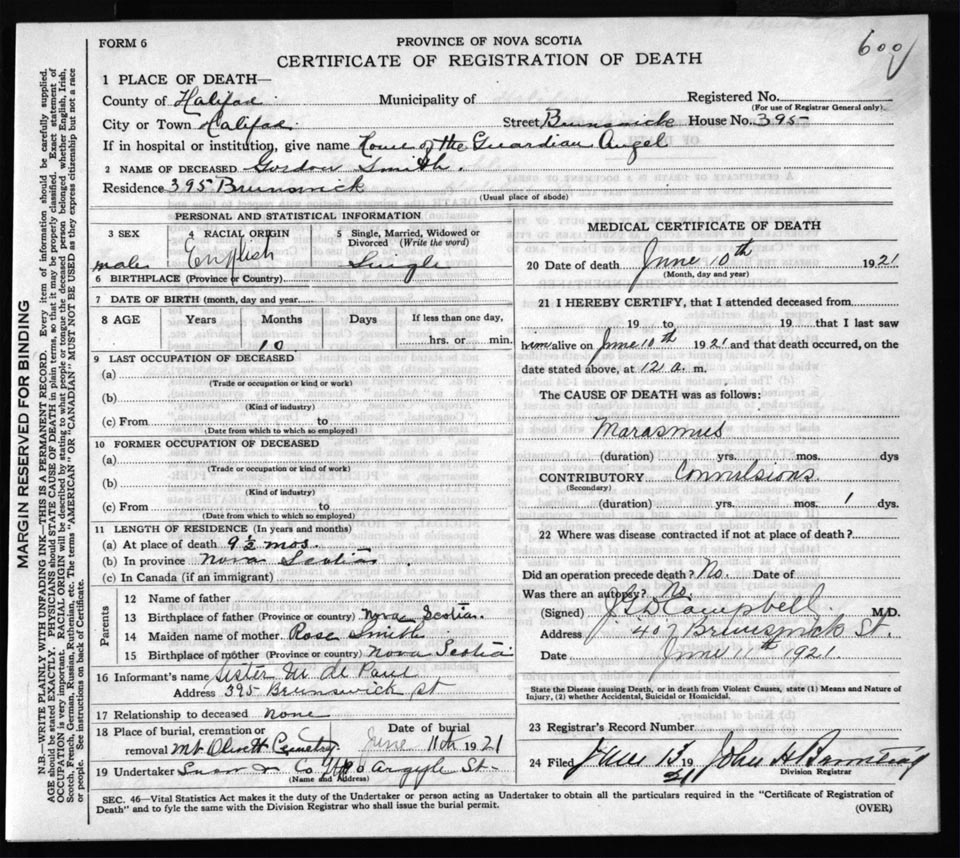 600
FORM 6
PROVINCE OF NOVA SCOTIA
CERTIFICATE OF REGISTRATION OF DEATH
1 PLACE OF DEATH—
County of Halifax Municipality of Registered No.
(For use of Registrar General only)
City or Town Halifax Street Brunswick House No. 395
If in hospital or institution, give name Home of the Guardian Angel
2 NAME OF DECEASED Gordon Smith.
Residence 395 Brunswick
(Usual place of abode)
PERSONAL AND STATISTICAL INFORMATION
3 SEX 4 RACIAL ORIGIN 5 Single, Married, Widowed or Divorced (Write the word)
male English Single
6 BIRTHPLACE (Province or Country)
7 DATE OF BIRTH (month, day and year)
8 AGE Years Months Days If less than one day,
10 hrs. or min.
9 LAST OCCUPATION OF DECEASED
(a)
(Trade or occupation or kind or work)
(b)
(Kind of industry)
(c) From to
(Date from which to which so employed)
10 FORMER OCCUPATION OF DECEASED
(a)
(Trade or occupation or kind of work)
(b)
(Kind of industry)
(c) From to
(Date from which to which so employed)
11 LENGTH OF RESIDENCE (In years and months)
(a) At place of death 9½ mos.
(b) In province Nova Scotia
(c) In Canada (if an immigrant)
Parents
12 Name of father
13 Birthplace of father (Province or country) Nova Scotia
14 Maiden name of mother Rose Smith
15 Birthplace of mother (Province or country) Nova Scotia
16 Informant's name Sister M de Paul
Address 395 Brunswick St
17 Relationship to deceased none
18 Place of burial, cremation or Date of burial
removal Mt Olivett Cemetry. June 11th 1921
19 Undertaker Snow & Co Argyle St
(Name and Address)
MEDICAL CERTIFICATE OF DEATH
20 Date of death June 10th 1921
(Month, day and year)
21 I HEREBY CERTIFY, that I attended deceased from
19 to 19 that I last saw
him alive on June 10th 1921 and that death occurred, on the
date stated above, at 12 a. m.
The CAUSE OF DEATH was as follows:
Marasmus
(duration) yrs. mos. dys
CONTRIBUTORY Convulsions
(Secondary)
(duration) yrs. mos. 1 dys.
22 Where was disease contracted if not at place of death?
Did an operation precede death? No. Date of
Was there an autopsy? No
(Signed) Campbell M/D.
Address 407 Brunswick St.
Date June 11th 1921
State the Disease causing Death, or in death from Violent Causes, state (1) Means and Nature of
Injury, (2) whether Accidental, Suicidal or Homicidal.
23 Registrar's Record Number
24 Filed June 13 19 21 John H
Division Registrar
SEC. 46—Vital Statistics Act makes it the duty of the Undertaker or person acting as Undertaker to obtain all the particulars required in the "Certificate of Registration of
Death" and to fyle the same with the Division Registrar who shall issue the burial permit. (OVER)
MARGIN RESERVED FOR BINDING
N.B.—WRITE PLAINLY WITH UNFADING INK—THIS IS A PERMANENT RECORD. Every item of information should be carefully supplied.
AGE should be stated EXACTLY. PHYSICIANS should STATE CAUSE OF DEATH in plain terms, so that it may be properly classified. Exact statement of
OCCUPATION is very important. RACIAL ORIGIN will be described by stating to what people or tongue the deceased person belonged whether English, Irish,
Scotch, French, German, Russian, Ruthenian, etc. The terms "AMERICAN" OR "CANADIAN" MUST NOT BE USED as they express citizenship but not a race
or people. See instructions on back of Certificate.